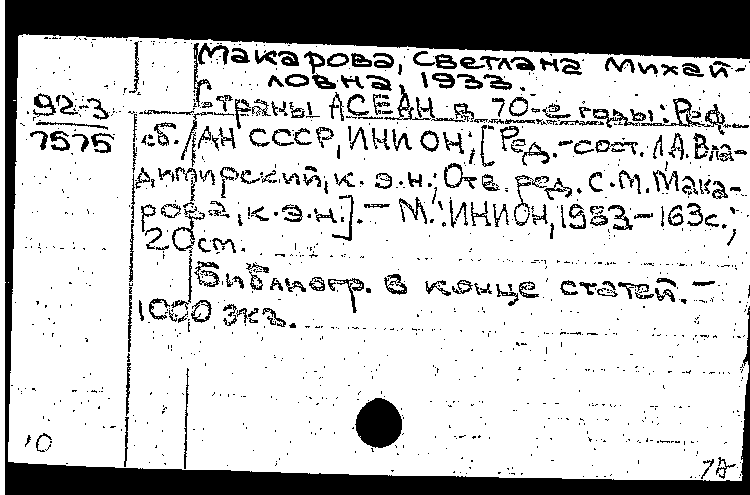 Макарова, Светлана Михай-
ловна, 1933.
92-3
7575
Страны АСЕАН в 70-е годы: Реф.
сб. / АН СССР, ИНИОН; [Ред.-сост. Л.А. Вла-
димирский, к.э.н.; Отв. ред. С.М. Мака-
рова, к.э.н.]. – М.: ИНИОН, 1983. – 163с.;
20см.
Библиогр. в конце статей. –
1000 экз.